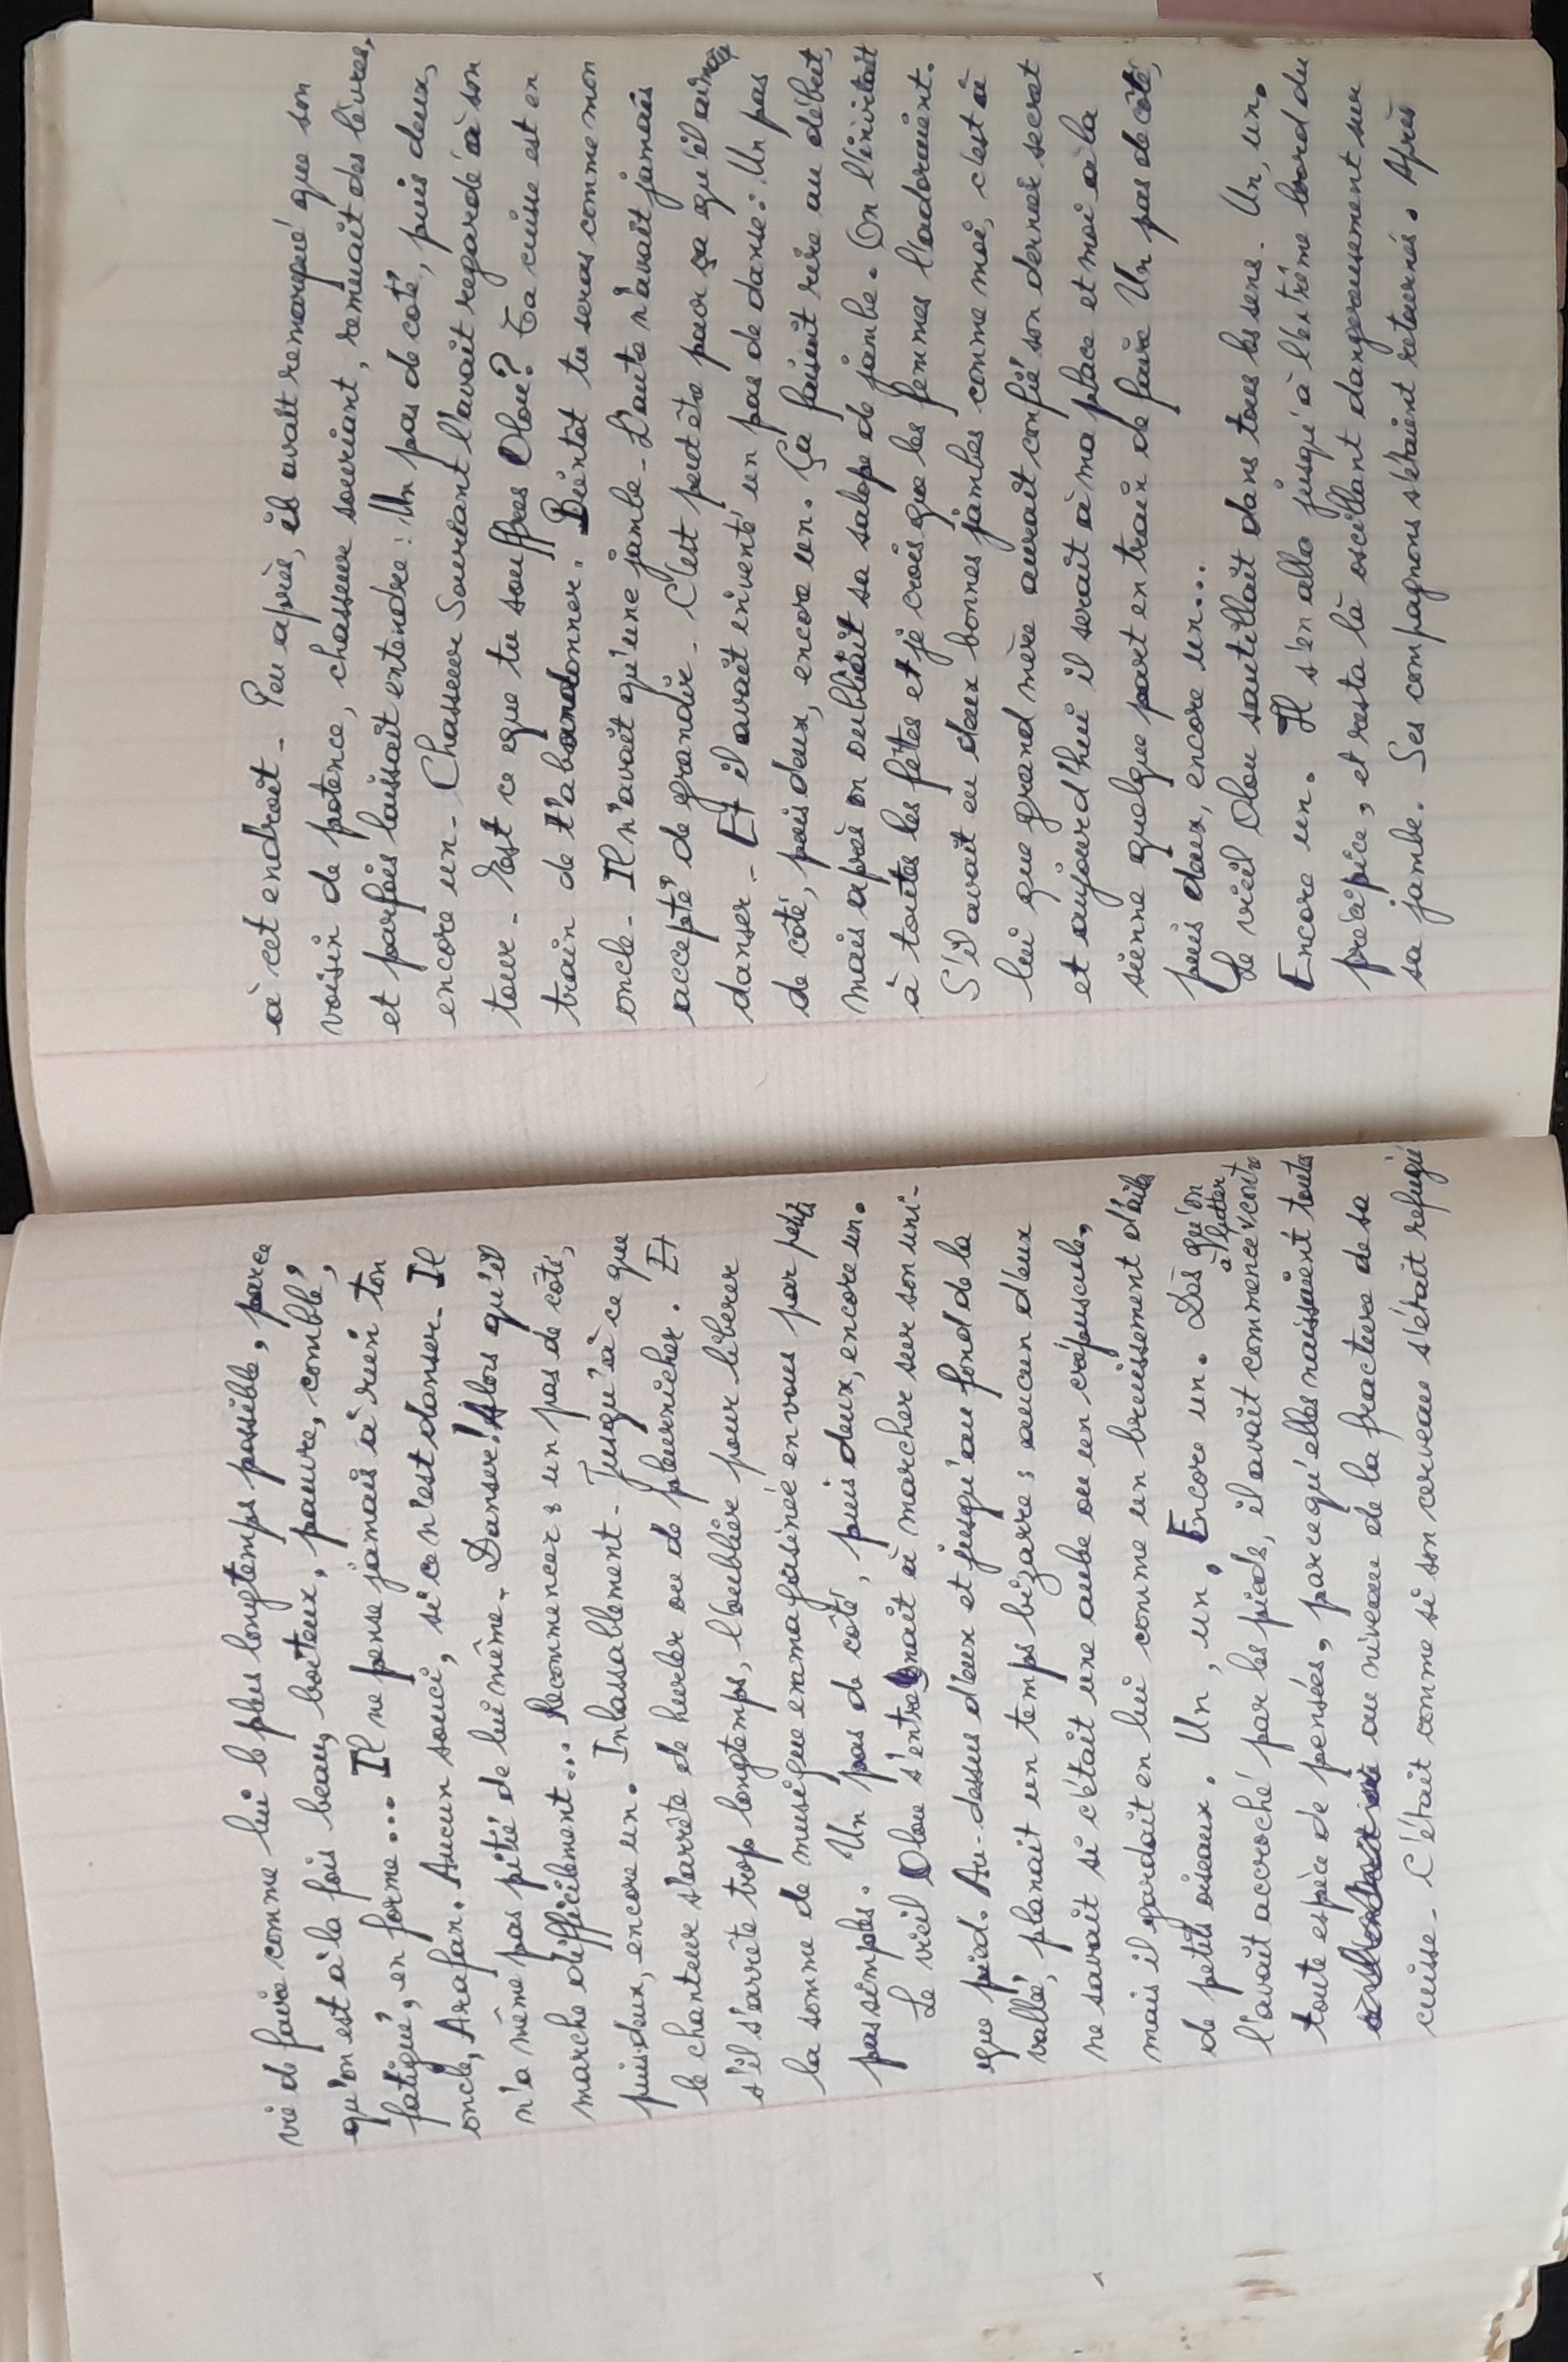 vie de faire comme lui le plus longtemps possible, parce
qu'on est à la fois beau, boiteux, pauvre, comblé,
fatigué, en forme... Il ne pense jamais à rien ton
oncle, Arafan. Aucun souci, si ce n'est danser. Il
n'a même pas pitié de lui même. Danser! Alors qu'il
marche difficilement... Recommencer : un pas de côté,
puis deux, encore un. Inlassablement - Jusqu'à ce que
le chanteur s'arrête de hurler ou de pleurnicher. Et
s'il s'arrête trop longtemps, l'oublier pour libérer
la somme de musique emmagasinée en vous par petits
pas simples. Un pas de côté, puis deux, encore un.
Le vieil Olou s'entraînait à marcher sur son uni-
que pied. Au-dessus d'eux et jusqu'au fond de la
vallée, planait un temps bizarre ; aucun d'eux
ne savait si c'était une aube ou un crépuscule,
mais il gardait en lui comme un bruissement d'ailes
de petits oiseaux. Un, un. Encore un. Dès qu'on
l'avait accroché par les pieds, il avait commencé à lutter contre
toute espèce de pensées, parce qu'elles naissaient toutes
au niveau de la fracture de sa
cuisse - C'était comme si son cerveau s'était refugié
à cet endroit - Peu après, il avait remarqué que son
voisin de potence, chasseur souriant, remuait des lèvres,
et parfois laissait entendre : Un pas de coté, puis deux,
encore un - Chasseur Souriant l'avait regardé à son
tour - Est ce que tu souffres Olou? Ta cuisse est en
train de t'abandonner. Bientôt tu seras comme mon
oncle - Il n'avait qu'une jambe - L'autre n'avait jamais
accepté de grandir - C'est peut être pour ça qu'il aimait
danser - Et il avait inventé un pas de danse : Un pas
de côté, puis deux, encore un. Ça faisait rire au début,
mais après on oubliait sa salope de jambe. On l'invitait
à toutes les fêtes et je crois que les femmes l'adoraient.
S'il avait eu deux bonnes jambes comme moi, c'est à
lui que grand mère aurait confié son dernier secret
et aujourd'hui il serait à ma place et moi à la
sienne quelque part en train de faire Un pas de côté,
puis deux, encore un...
Le vieil Olou sautillait dans tous les sens. Un, un.
Encore un. Il s'en alla jusqu'à l'extrême bord du
précipice, et resta là oscillant dangereusement sur
sa jambe. Ses compagnons s'étaient retournés. Après